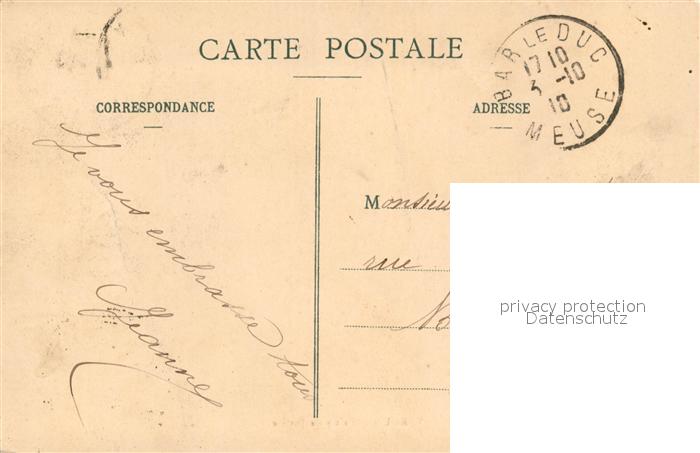 CARTE POSTALE
CORRESPONDANCE
ADRESSE
BAR LE DUC
17 10
3 -10
10
MEUSE
Je vous embrasse tous
Jeanne
Monsieu
rue
privacy protection
Datenschutz